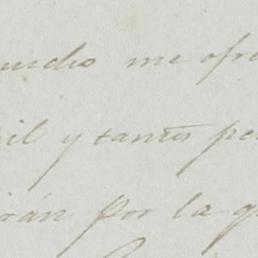 mucho me ofre
il y tantos pe
irán por la g